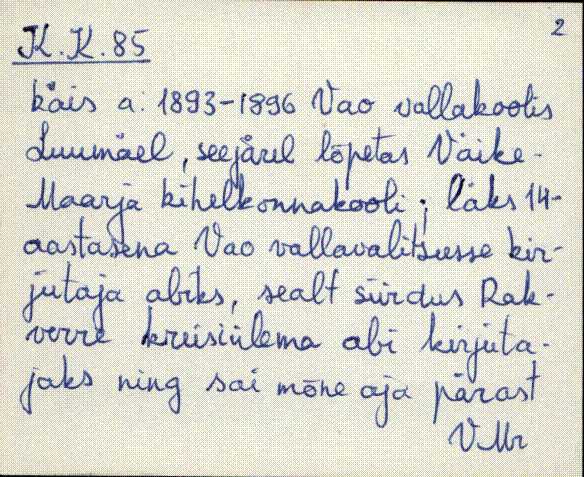 2
K.K.85
käis a. 1893-1896 Vao vallakoolis
Luumäel, seejärel lõpetas Väike-
Maarja kihelkonnakooli; läks 14-
aastasena Vao vallavalitsusse kir-
jutaja abiks, sealt siirdus Rak-
verre kreisiülema abi kirjuta-
jaks ning sai mõne aja pärast
VMr